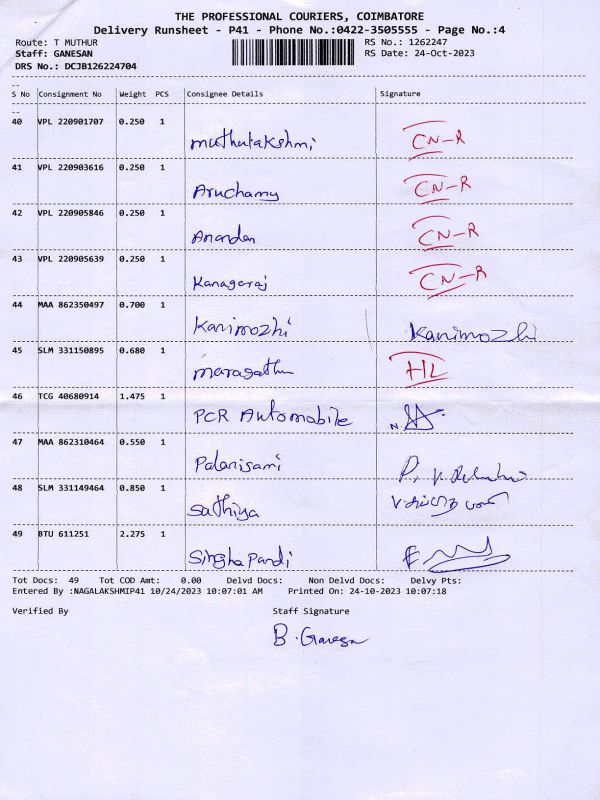 THE PROFESSIONAL COURIERS, COIMBATORE
Delivery Runsheet - P41 - Phone No.:0422-3505555 - Page No.:4
Route: T MUTHUR RS No.: 1262247
Staff: GANESAN RS Date: 24-Oct-2023
DRS No.: DCJB126224704
S No Consignment No Weight PCS Consignee Details Signature
40 VPL 220901707 0.250 1 Muthulakshmi CN-R
41 VPL 220903616 0.250 1 Aruchamy CN-R
42 VPL 220905846 0.250 1 Anandan CN-R
43 VPL 220905639 0.250 1 Kanagaraj CN-R
44 MAA 862350497 0.700 1 Kanimozhi Kanimozhi
45 SLM 331150895 0.680 1 Maragatham HL
46 TCG 40680914 1.475 1 PCR Automobile N.
47 MAA 862310464 0.550 1 Palanisami P. V.
48 SLM 331149464 0.850 1 Sathiya
49 BTU 611251 2.275 1 Singha Pandi
Tot Docs: 49 Tot COD Amt: 0.00 Delvd Docs: Non Delvd Docs: Delvy Pts:
Entered By :NAGALAKSHMIP41 10/24/2023 10:07:01 AM Printed On: 24-10-2023 10:07:18
Verified By Staff Signature
B. Ganesa